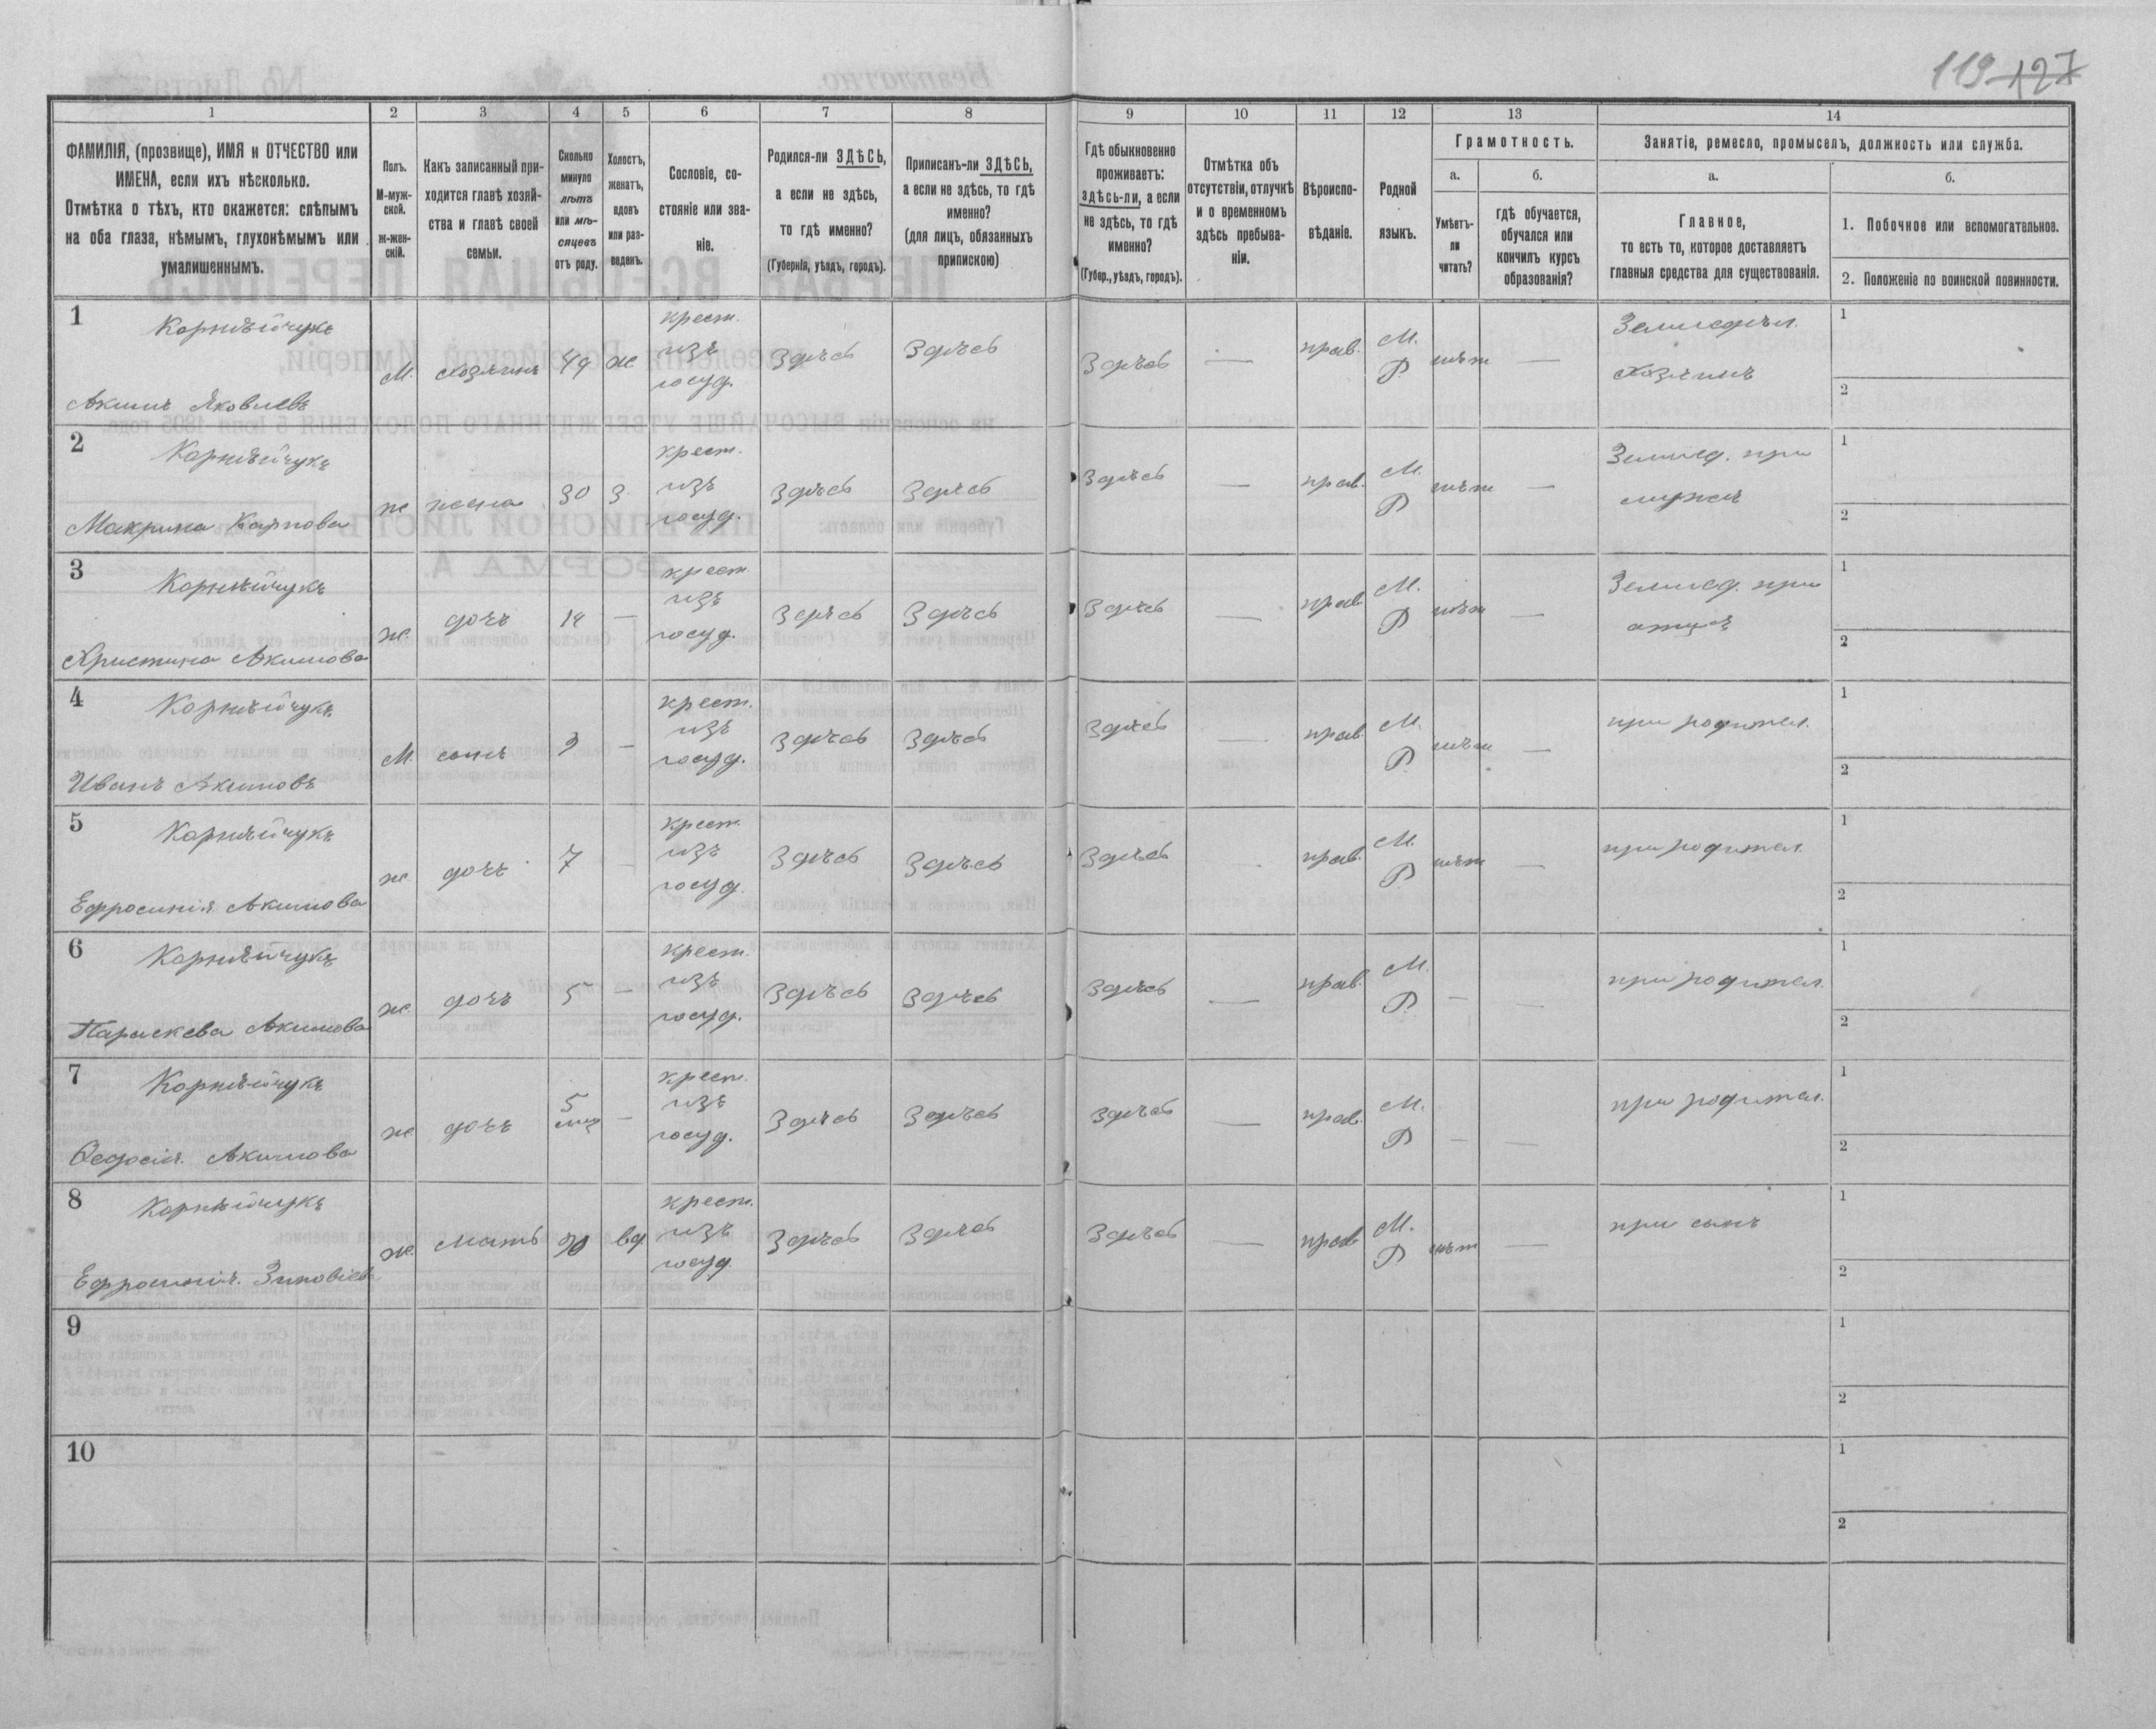 119 127
1 2 3 4 5 6 7 8 9 10 11 12 13 14
ФАМИЛІЯ, (прозвище), ИМЯ и ОТЧЕСТВО или
ИМЕНА, если ихъ нѣсколько.
Отмѣтка о тѣхъ, кто окажется: слѣпымъ
на оба глаза, нѣмымъ, глухонѣмымъ или
умалишеннымъ.
Полъ.
М-муж-
ской.
ж-жен-
скій.
Какъ записанный при-
ходится главѣ хозяй-
ства и главѣ своей
семьи.
Сколько
минуло
лѣтъ
или мѣ-
сяцевъ
отъ роду.
Холостъ,
женатъ,
вдовъ
или раз-
веденъ.
Сословіе, со-
стояніе или зва-
ніе.
Родился-ли ЗДѢСЬ,
а если не здѣсь,
то гдѣ именно?
(Губернія, уѣздъ, городъ).
Приписанъ-ли ЗДѢСЬ,
а если не здѣсь, то гдѣ
именно?
(для лицъ, обязанныхъ
припискою)
Гдѣ обыкновенно
проживаетъ:
здѣсь-ли, а если
не здѣсь, то гдѣ
именно?
(Губер., уѣздъ, городъ).
Отмѣтка объ
отсутствіи, отлучкѣ
и о временномъ
здѣсь пребыва-
ніи.
Вѣроиспо-
вѣданіе.
Родной
языкъ.
Грамотность.
а.
Умѣетъ-
ли
читать?
б.
гдѣ обучается,
обучался или
кончилъ курсъ
образованія?
Занятіе, ремесло, промыселъ, должность или служба.
а.
Главное,
то есть то, которое доставляетъ
главныя средства для существованія.
б.
1. Побочное или вспомогательное.
2. Положеніе по воинской повинности.
1 Корнѣйчукъ
Акимъ Яковлевъ
М. хозяинъ 49 ж
крест.
изъ
госуд.
Здѣсь Здѣсь Здѣсь — прав. М.
Р. нѣт —
Земледѣл.
хозяинъ
1
2
2 Корнѣйчукъ
Макрина Карпова
ж жена 30 з.
крест.
изъ
госуд.
Здѣсь Здѣсь Здѣсь — прав. М.
Р нѣт —
Земледѣ. при
мужѣ
1
2
3 Корнѣйчукъ
Христина Акимова
ж. дочь 14 —
крест
изъ
госуд.
Здѣсь Здѣсь Здѣсь — прав. М.
Р нѣт —
Земледѣ. при
отцѣ
1
2
4 Корнѣйчукъ
Иванъ Акимовъ
М. сынъ 9 —
крест.
изъ
госуд.
Здѣсь Здѣсь Здѣсь — прав. М.
Р. нѣт —
при родител.
1
2
5 Корнѣйчукъ
Ефросинія Акимова
ж. дочь 7 —
крест.
изъ
госуд.
Здѣсь Здѣсь Здѣсь — прав. М.
Р нѣт —
при родител.
1
2
6 Корнѣйчукъ
Параскева Акимова
ж. дочь 5 —
крест.
изъ
госуд.
Здѣсь Здѣсь Здѣсь — прав. М.
Р. — —
при родител.
1
2
7 Корнѣйчукъ
Ѳедосія Акимова
ж. дочь 5
мц —
крест.
изъ
госуд.
Здѣсь Здѣсь Здѣсь — прав. М.
Р — —
при родител.
1
2
8 Корнѣйчукъ
Ефросинія Зиновіева
ж. мать 70 вд
крест.
изъ
госуд.
Здѣсь Здѣсь Здѣсь — прав М.
Р нѣт —
при сынѣ
1
2
9
1
2
10
1
2